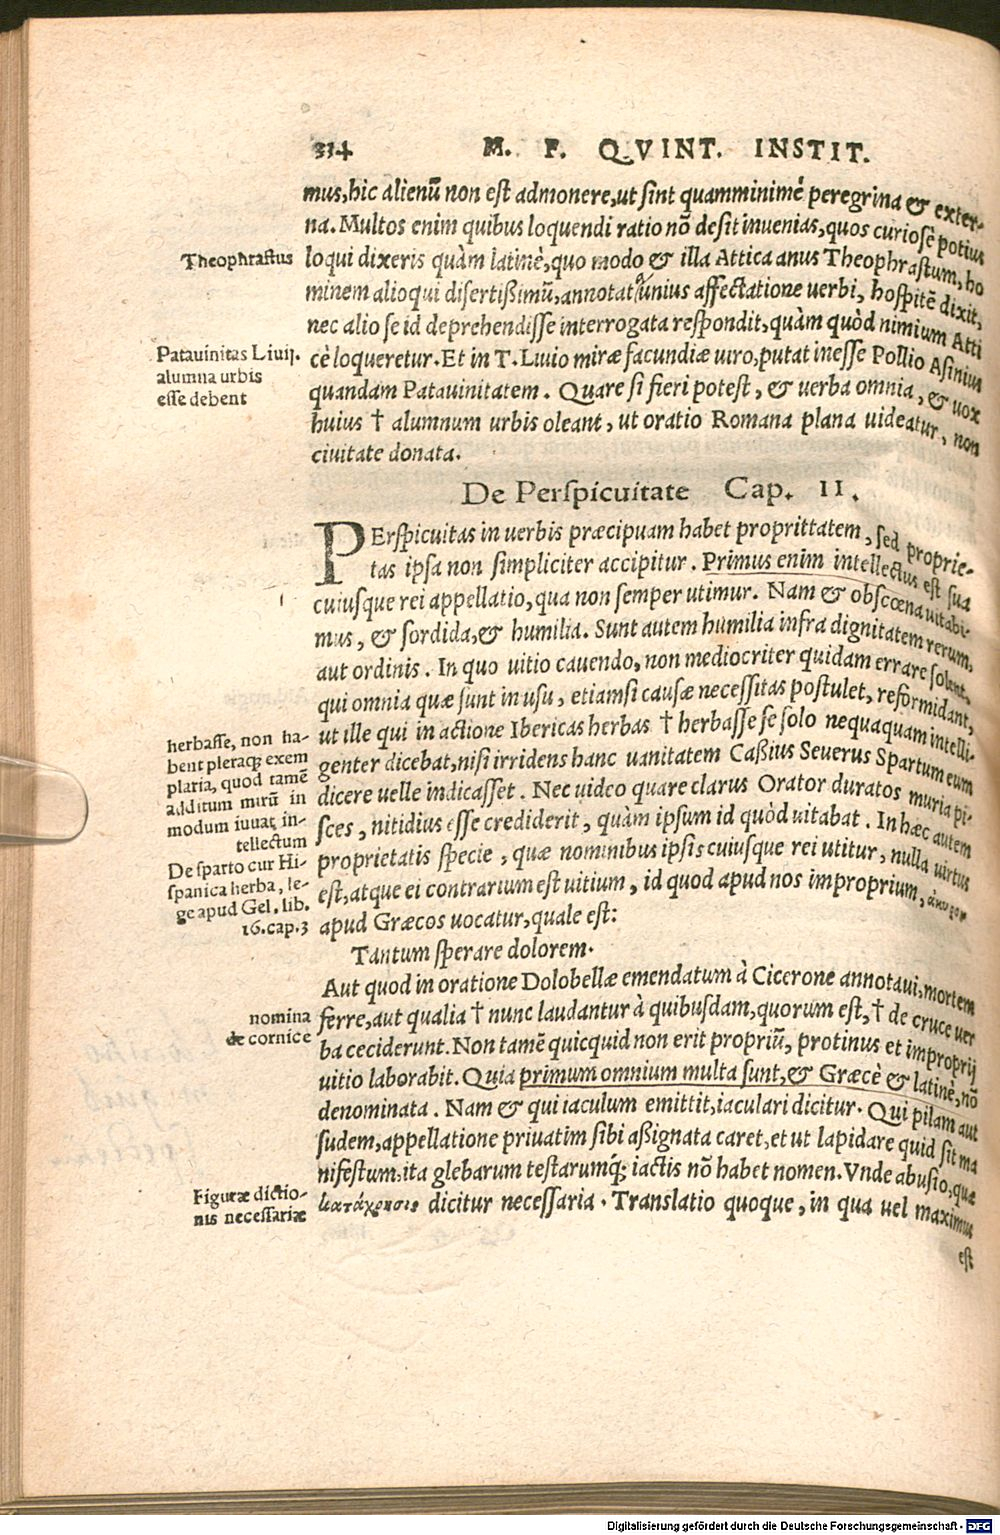 314 M. F. QVINT. INSTIT.
mus, hic alienū non est admonere, ut sint quamminimè peregrina & exter-
na. Multos enim quibus loquendi ratio nō desit inuenias, quos curiosè potius
Theophrastus
loqui dixeris quàm latinè, quo modo & illa Attica anus Theophrastum, ho
minem alioqui disertißimū, annotata unius affectatione uerbi, hospitē dixit,
nec alio se id deprehendisse interrogata respondit, quàm quòd nimium Atti
Patauinitas Liuij.
alumna urbis
esse debent
cè loqueretur. Et in T. Liuio miræ facundiæ uiro, putat inesse Pollio Asinius
quandam Patauinitatem. Quare si fieri potest, & uerba omnia, & uox
huius † alumnum urbis oleant, ut oratio Romana plana uideatur, non
ciuitate donata.
De Perspicuitate Cap. II.
PErspicuitas in uerbis præcipuam habet proprittatem, sed proprie-
tas ipsa non simpliciter accipitur. Primus enim intellectus est sua
cuiusque rei appellatio, qua non semper utimur. Nam & obscœna uitabi-
mus, & sordida, & humilia. Sunt autem humilia infra dignitatem rerum,
aut ordinis. In quo uitio cauendo, non mediocriter quidam errare solent,
qui omnia quæ sunt in usu, etiamsi causæ necessitas postulet, reformidant,
herbasse, non ha-
bent pleraq; exem
plaria, quod tamē
additum mirū in
modum iuuat in-
tellectum
ut ille qui in actione Ibericas herbas † herbasse se solo nequaquam intelli-
genter dicebat, nisi irridens hanc uanitatem Caßius Seuerus Spartum eum
dicere uelle indicasset. Nec uideo quare clarus Orator duratos muria pi-
sces, nitidius esse crediderit, quàm ipsum id quòd uitabat. In hæc autem
De sparto cur Hi-
spanica herba, le-
ge apud Gel. lib.
16. cap. 3
proprietatis specie, quæ nominibus ipsis cuiusque rei utitur, nulla uirtus
est, atque ei contrarium est uitium, id quod apud nos improprium, ἄκυρον
apud Græcos uocatur, quale est:
Tantum sperare dolorem.
Aut quod in oratione Dolobellæ emendatum à Cicerone annotaui, mortem
nomina
de cornice
ferre, aut qualia † nunc laudantur à quibusdam, quorum est, † de cruce uer
ba ceciderunt. Non tamē quicquid non erit propriū, protinus et improprij
uitio laborabit. Quia primum omnium multa sunt, & Græcè & latinè, nō
denominata. Nam & qui iaculum emittit, iaculari dicitur. Qui pilam aut
sudem, appellatione priuatim sibi aßignata caret, et ut lapidare quid sit ma
nifestum, ita glebarum testarumq; iactis nō habet nomen. Vnde abusio, quæ
Figuræ dictio-
nis necessariæ
κατάχρησις dicitur necessaria. Translatio quoque, in qua uel maximus
est
Digitalisierung gefördert durch die Deutsche Forschungsgemeinschaft - DFG